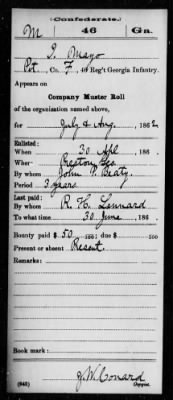 (Confederate.)
M 46 Ga.
Mayo
Pvt., Co. F, 46 Reg't Georgia Infantry.
Appears on
Company Muster Roll
of the organization named above,
for July & Aug, 1862
Enlisted:
When 30 Apl, 186
Where Geo
By whom John P. Beaty.
Period 3 years
Last paid:
By whom R. H. Lennard
To what time 30 June, 186
Bounty paid $ 50 100; due $ 100
Present or absent Present.
Remarks:
Book mark:
(642) J. W. Conard
Copyist.